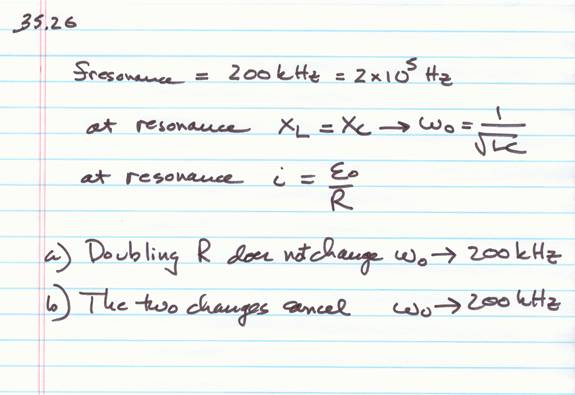 35.26
fresonance = 200 kHz = 2×10⁵ Hz
at resonance X_L = X_C → ω₀ = 1/√LC
at resonance i = ε₀/R
a) Doubling R does not change ω₀ → 200 kHz
b) The two changes cancel ω₀ → 200 kHz